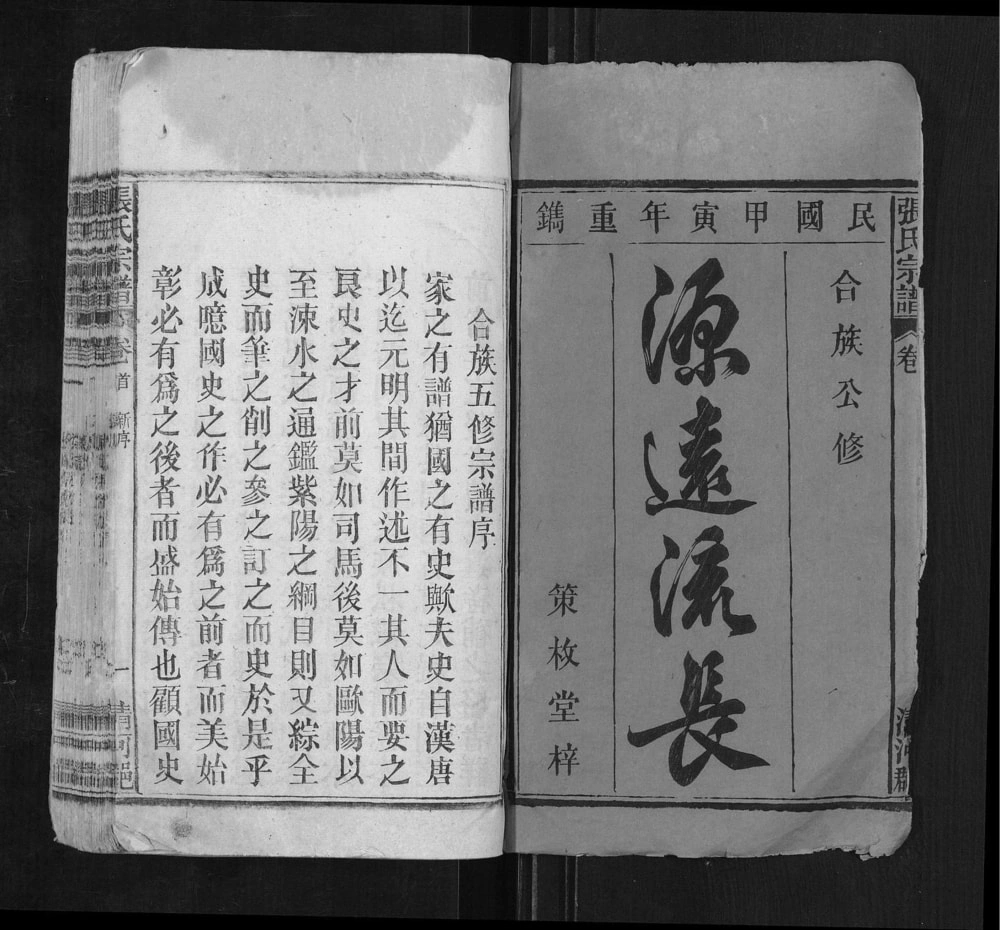 張氏宗譜
卷
清河郡
民國甲寅年重鐫
合族公修
源遠流長
策枚堂梓
合族五修宗譜序
家之有譜猶國之有史歟夫史自漢唐
以迄元明其間作述不一其人而要之
良史之才前莫如司馬後莫如歐陽以
至涑水之通鑑紫陽之綱目則又綜全
史而筆之削之參之訂之而史於是乎
成噫國史之作必有爲之前者而美始
彰必有爲之後者而盛始傳也顧國史
張氏宗譜
卷首
新序
一
清河郡